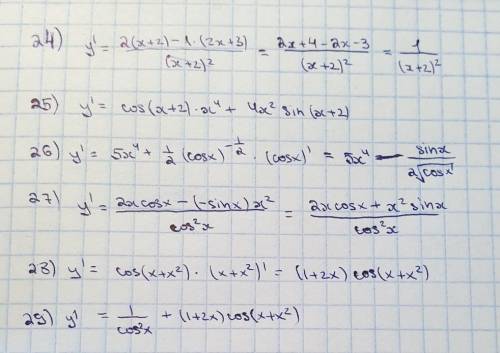 24) y' = \frac{2(x+2) - 1 \cdot (2x+3)}{(x+2)^2} = \frac{2x+4-2x-3}{(x+2)^2} = \frac{1}{(x+2)^2}
25) y' = cos(x+2) \cdot x^4 + 4x^2 sin(x+2)
26) y' = 5x^4 + \frac{1}{2} (cosx)^{-\frac{1}{2}} \cdot (cosx)' = 5x^4 - \frac{sinx}{2\sqrt{cosx}}
27) y' = \frac{2x cosx - (-sinx) x^2}{cos^2x} = \frac{2x cosx + x^2 sinx}{cos^2x}
28) y' = cos(x+x^2) \cdot (x+x^2)' = (1+2x) cos(x+x^2)
29) y' = \frac{1}{cos^2x} + (1+2x) cos(x+x^2)